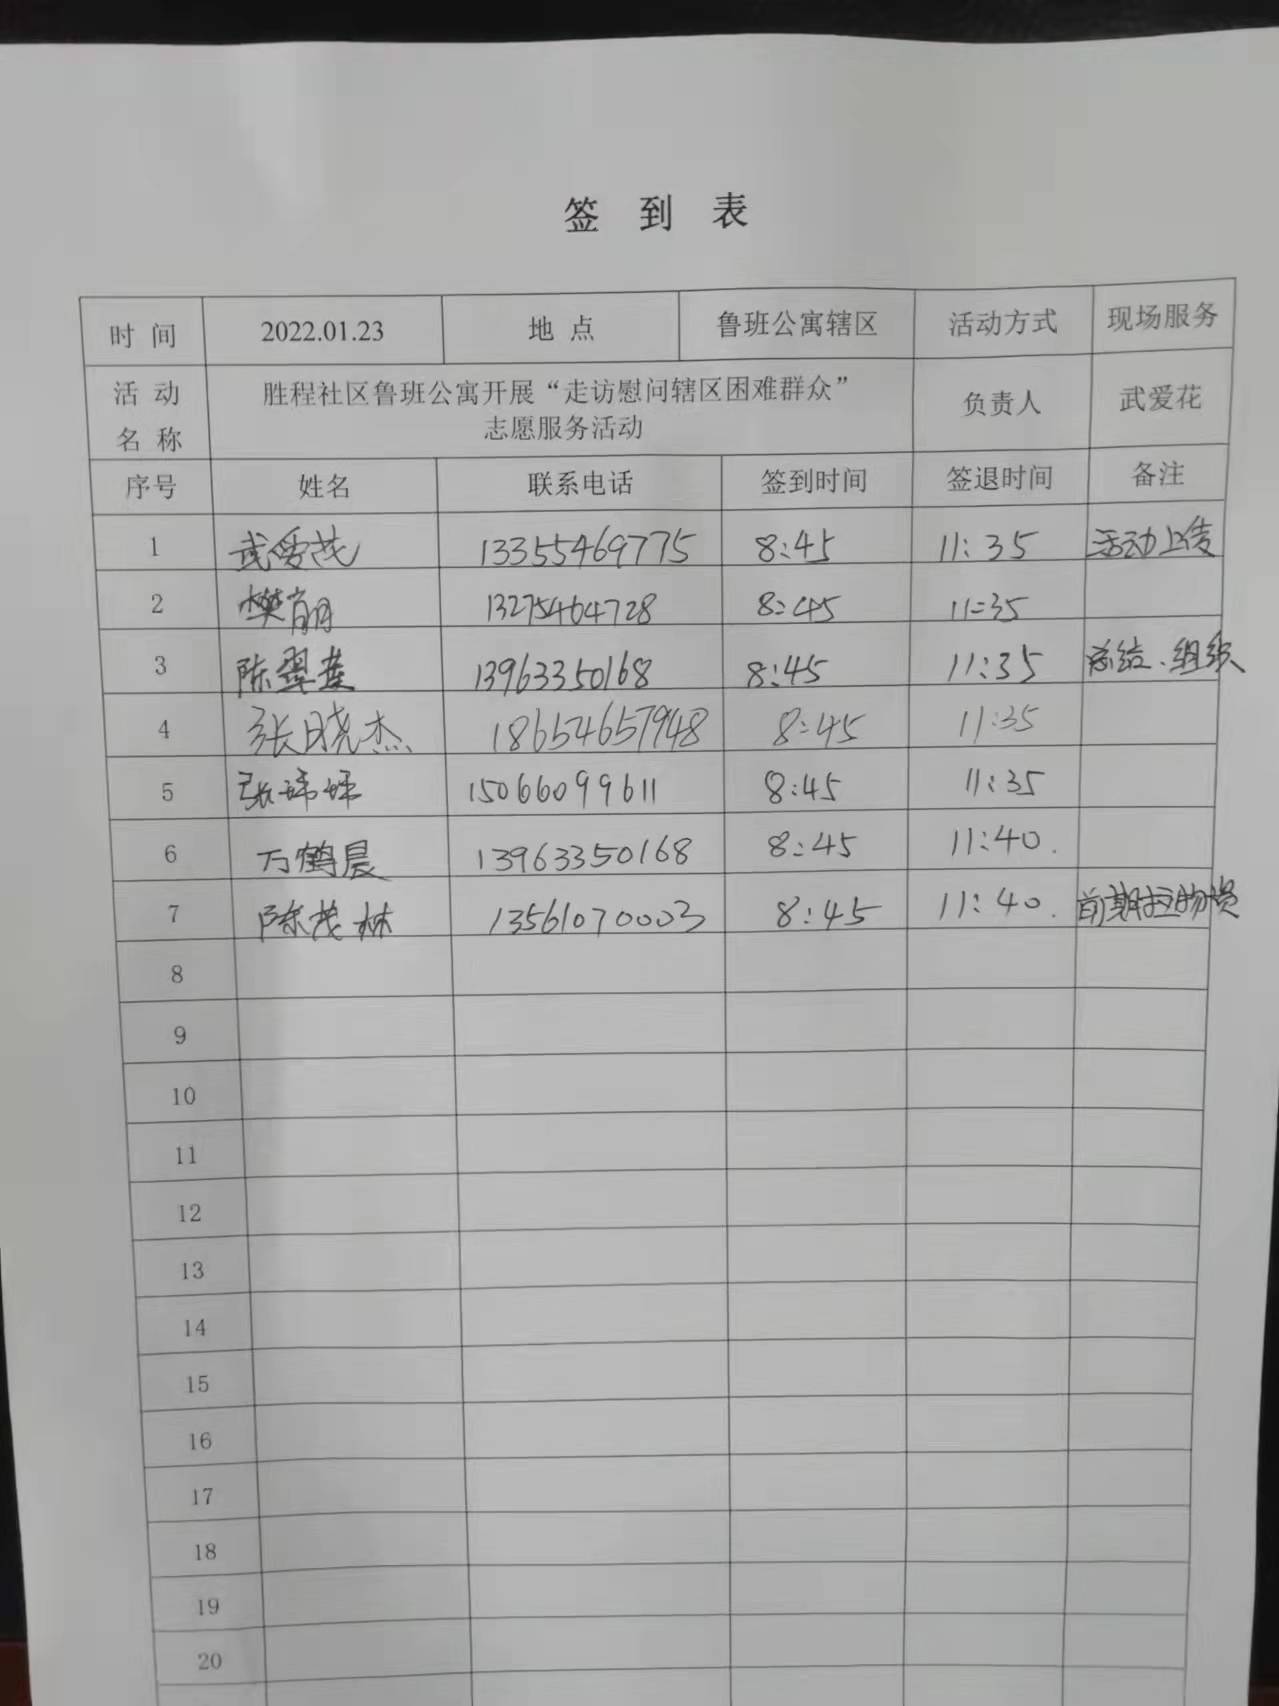 签 到 表
时 间 2022.01.23 地 点 鲁班公寓辖区 活动方式 现场服务
活 动 名 称 胜程社区鲁班公寓开展“走访慰问辖区困难群众”
志愿服务活动 负责人 武爱花
序号 姓名 联系电话 签到时间 签退时间 备注
1 武爱花 13355469775 8:45 11:35 活动上传
2 樊 13275464728 8:45 11:35
3 陈翠 13963350168 8:45 11:35 总结、组织
4 张晓杰 18654657948 8:45 11:35
5 张 15066099611 8:45 11:35
6 万鹤晨 13963350168 8:45 11:40.
7 陈茂林 13561070003 8:45 11:40. 前期拉物资
8
9
10
11
12
13
14
15
16
17
18
19
20